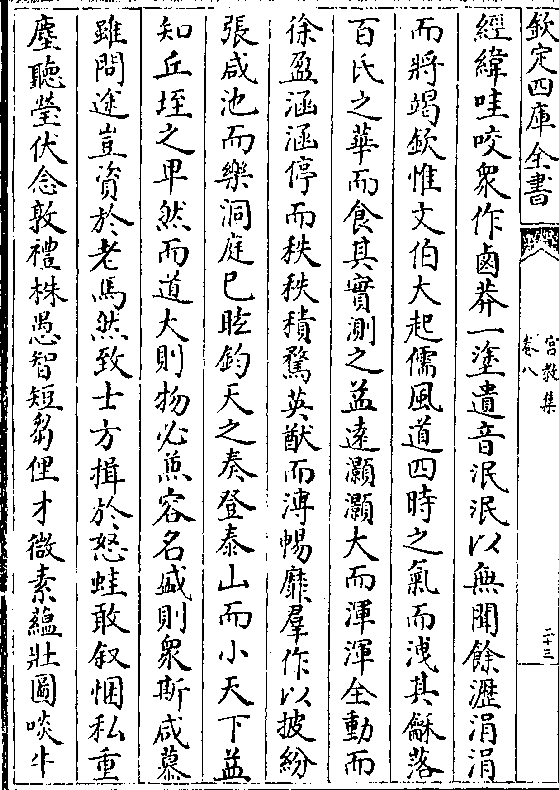 欽定四庫全書
宮教集
卷八
二十三
經緯哇咬衆作鹵莽一塗遺音泯泯以無聞餘瀝涓涓
而將竭欽惟文伯大起儒風道四時之氣而洩其龢落
百氏之華而食其實測之益遠灝灝大而渾渾全動而
徐盈涵涵停而秩秩積騖英猷而溥暢靡羣作以披紛
張咸池而樂洞庭已眩鈞天之奏登泰山而小天下益
知丘垤之卑然而道大則物必蕉容名盛則衆斯咸慕
雖問途豈資於老馬然致士方揖於怒蛙敢叙悃私重
塵聽瑩伏念敦禮株愚智短芻俚才微素蘊壯圖啖牛